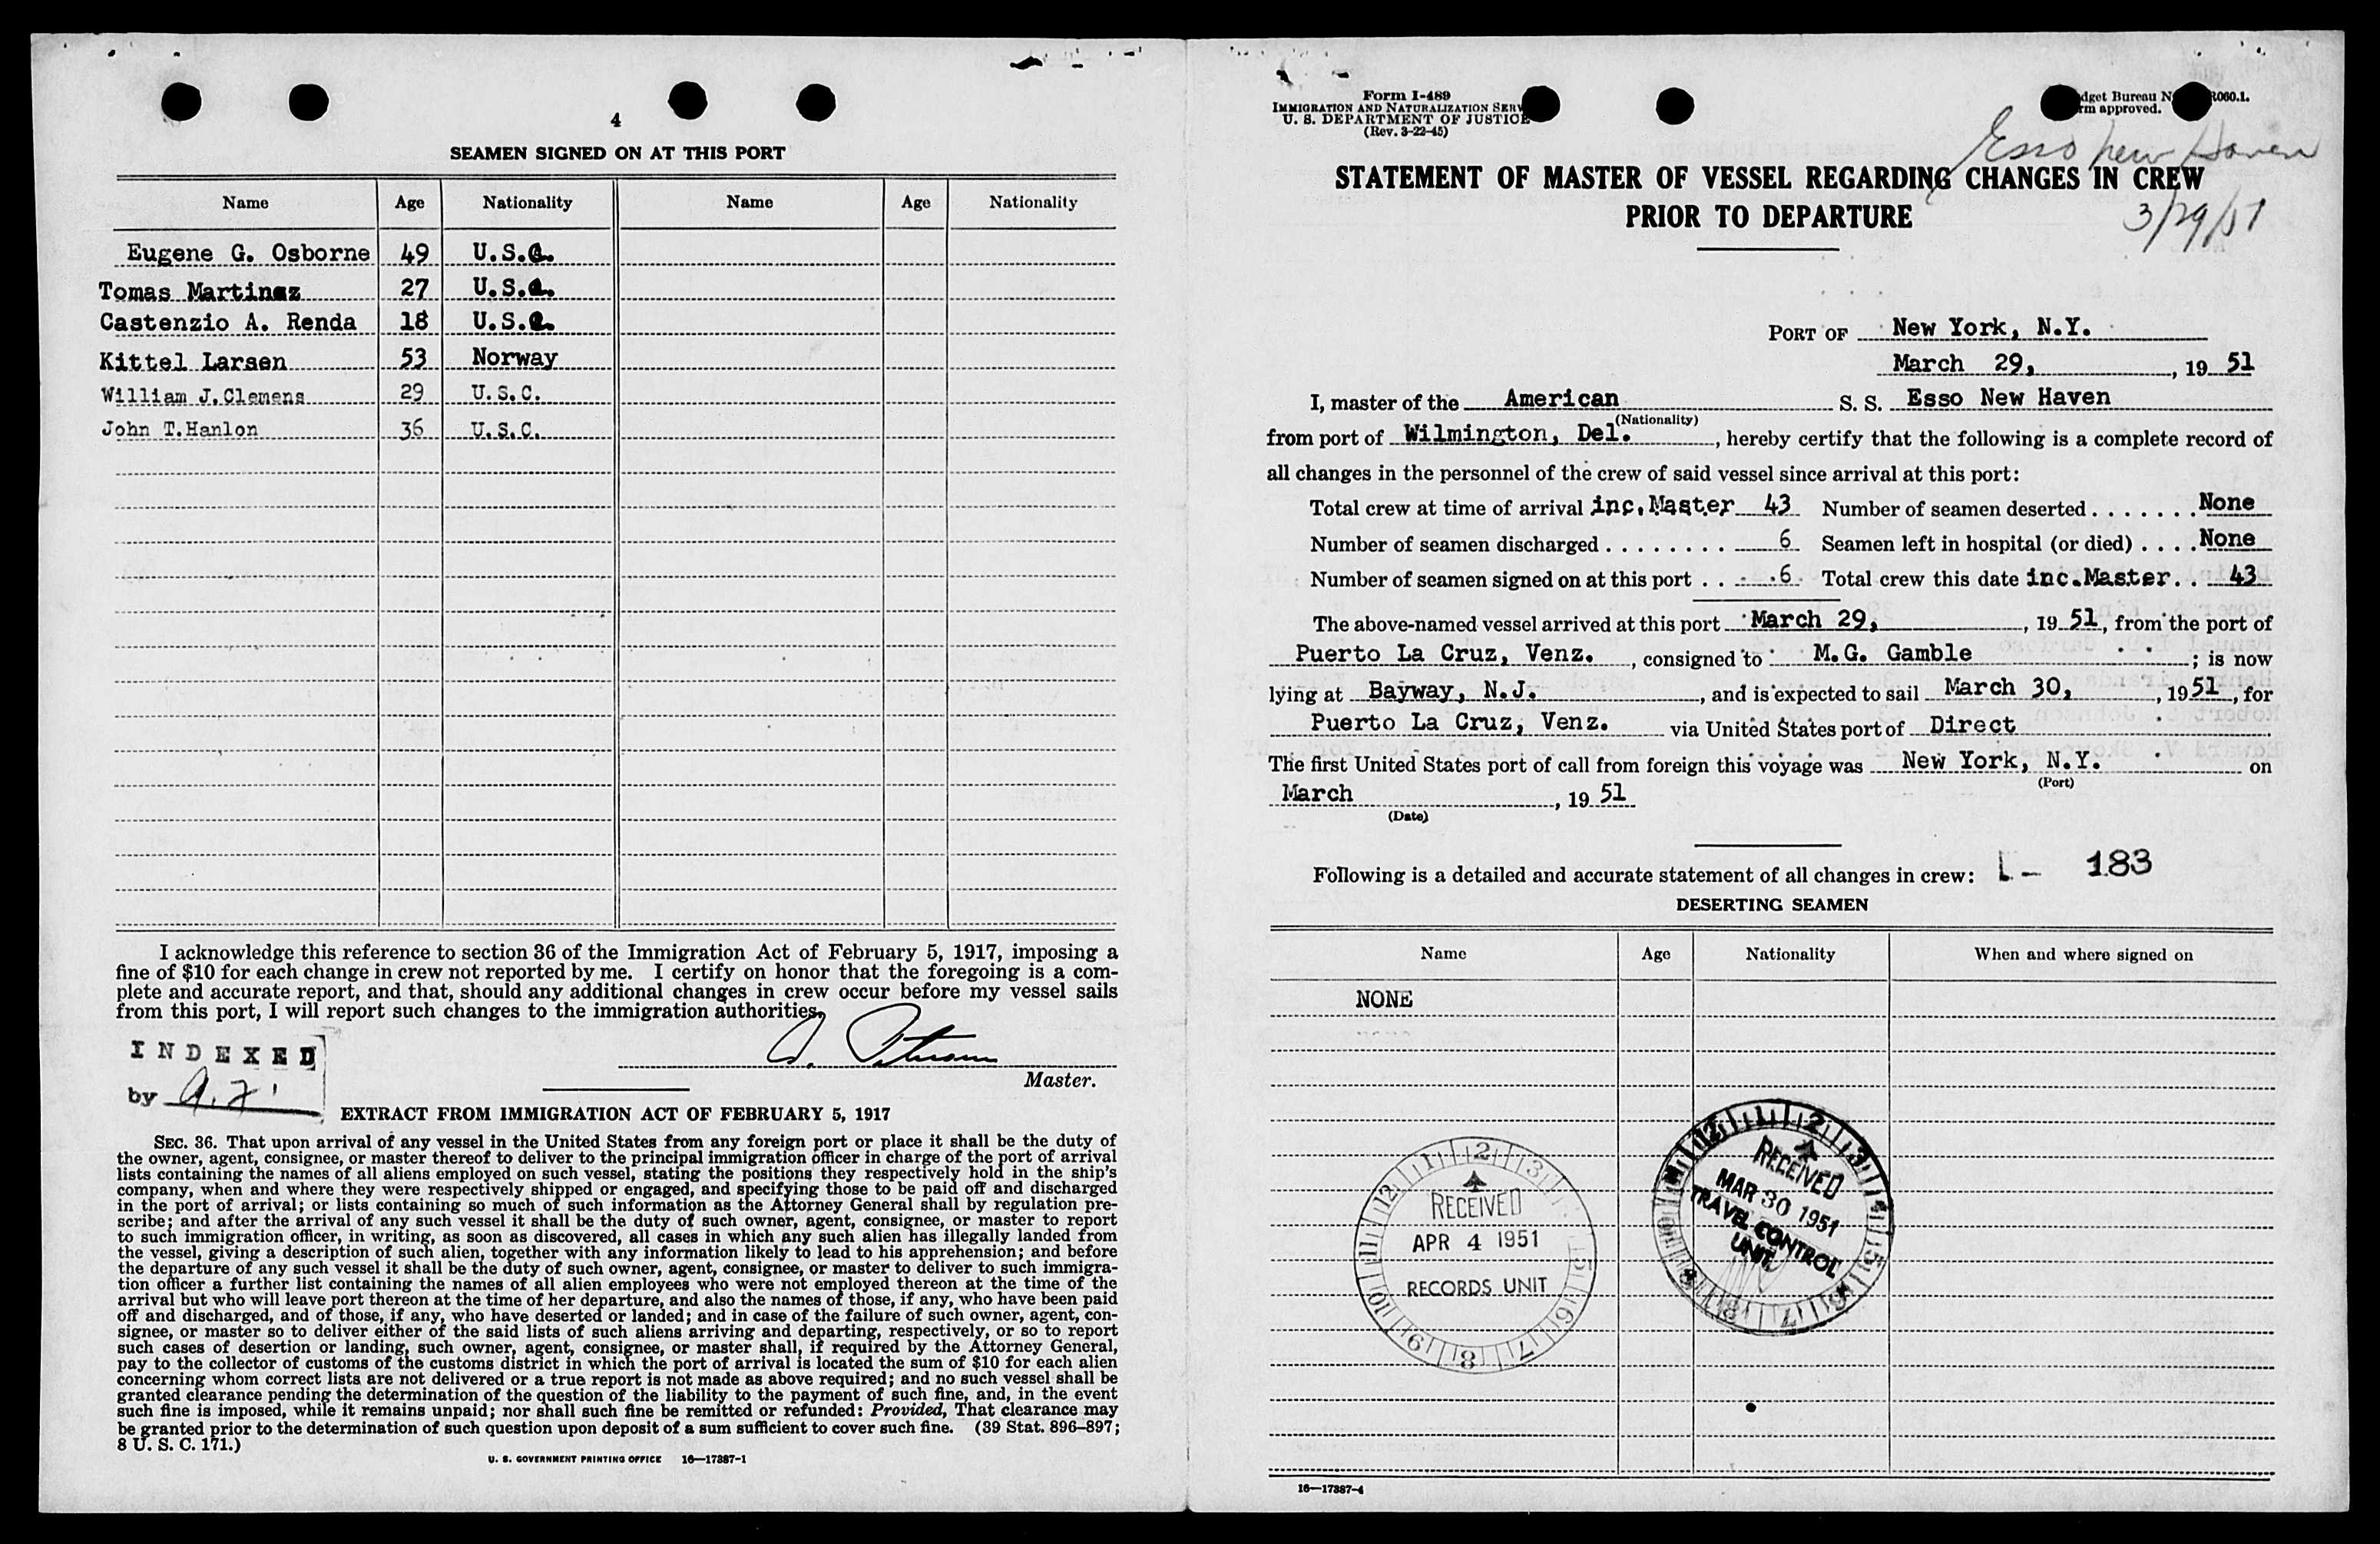 4
SEAMEN SIGNED ON AT THIS PORT
Name Age Nationality Name Age Nationality
Eugene G. Osborne 49 U.S.C.
Tomas Martinez 27 U.S.C.
Castenzio A. Renda 18 U.S.C.
Kittel Larsen 53 Norway
William J.Clemens 29 U.S.C.
John T.Hanlon 36 U.S.C.
I acknowledge this reference to section 36 of the Immigration Act of February 5, 1917, imposing a
fine of $10 for each change in crew not reported by me. I certify on honor that the foregoing is a com-
plete and accurate report, and that, should any additional changes in crew occur before my vessel sails
from this port, I will report such changes to the immigration authorities.
Master.
INDEXED
by
EXTRACT FROM IMMIGRATION ACT OF FEBRUARY 5, 1917
SEC. 36. That upon arrival of any vessel in the United States from any foreign port or place it shall be the duty of
the owner, agent, consignee, or master thereof to deliver to the principal immigration officer in charge of the port of arrival
lists containing the names of all aliens employed on such vessel, stating the positions they respectively hold in the ship's
company, when and where they were respectively shipped or engaged, and specifying those to be paid off and discharged
in the port of arrival; or lists containing so much of such information as the Attorney General shall by regulation pre-
scribe; and after the arrival of any such vessel it shall be the duty of such owner, agent, consignee, or master to report
to such immigration officer, in writing, as soon as discovered, all cases in which any such alien has illegally landed from
the vessel, giving a description of such alien, together with any information likely to lead to his apprehension; and before
the departure of any such vessel it shall be the duty of such owner, agent, consignee, or master to deliver to such immigra-
tion officer a further list containing the names of all alien employees who were not employed thereon at the time of the
arrival but who will leave port thereon at the time of her departure, and also the names of those, if any, who have been paid
off and discharged, and of those, if any, who have deserted or landed; and in case of the failure of such owner, agent, con-
signee, or master so to deliver either of the said lists of such aliens arriving and departing, respectively, or so to report
such cases of desertion or landing, such owner, agent, consignee, or master shall, if required by the Attorney General,
pay to the collector of customs of the customs district in which the port of arrival is located the sum of $10 for each alien
concerning whom correct lists are not delivered or a true report is not made as above required; and no such vessel shall be
granted clearance pending the determination of the question of the liability to the payment of such fine, and, in the event
such fine is imposed, while it remains unpaid; nor shall such fine be remitted or refunded: Provided, That clearance may
be granted prior to the determination of such question upon deposit of a sum sufficient to cover such fine. (39 Stat. 896-897;
8 U. S. C. 171.)
U. S. GOVERNMENT PRINTING OFFICE 16—17887-1
Form I-489
IMMIGRATION AND NATURALIZATION SERV
U. S. DEPARTMENT OF JUSTICE
(Rev. 3-22-45)
dget Bureau N R060.1.
rm approved.
Esso New Haven
STATEMENT OF MASTER OF VESSEL REGARDING CHANGES IN CREW
PRIOR TO DEPARTURE
3/29/51
PORT OF New York, N.Y.
March 29, , 19 51
I, master of the American S. S. Esso New Haven
(Nationality)
from port of Wilmington, Del. , hereby certify that the following is a complete record of
all changes in the personnel of the crew of said vessel since arrival at this port:
Total crew at time of arrival inc. Master 43 Number of seamen deserted . . . . . . . None
Number of seamen discharged . . . . . . . . 6 Seamen left in hospital (or died) . . . . None
Number of seamen signed on at this port . . 6 Total crew this date inc.Master. . 43
The above-named vessel arrived at this port March 29, , 19 51, from the port of
Puerto La Cruz, Venz. , consigned to M.G. Gamble ; is now
lying at Bayway, N.J. , and is expected to sail March 30, , 19 51, for
Puerto La Cruz, Venz. via United States port of Direct
The first United States port of call from foreign this voyage was New York, N.Y. on
(Port)
March , 19 51
(Date)
Following is a detailed and accurate statement of all changes in crew: L - 183
DESERTING SEAMEN
Name Age Nationality When and where signed on
NONE
RECEIVED
APR 4 1951
RECORDS UNIT
RECEIVED
MAR 30 1951
TRAVEL CONTROL
UNIT
16—17887-4